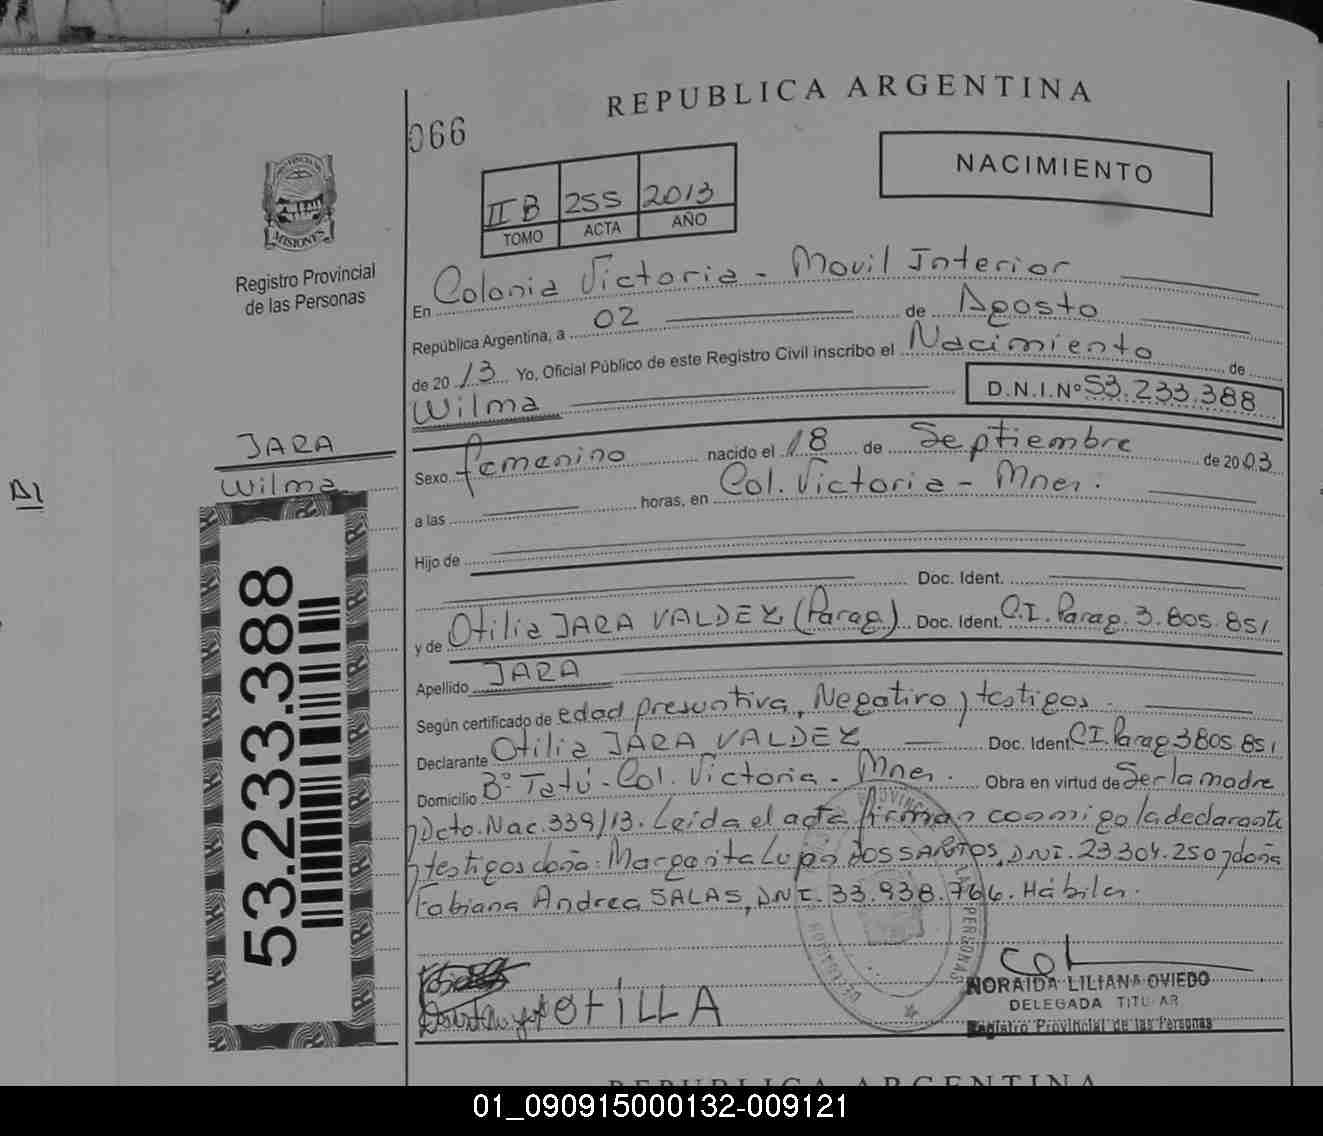 REPUBLICA ARGENTINA
066
NACIMIENTO
II B 255 2013
TOMO ACTA AÑO
PROVINCIA DE
MISIONES
Registro Provincial
de las Personas
En Colonia Victoria - Movil Interior
República Argentina, a 02 de Agosto
de 2013 Yo, Oficial Público de este Registro Civil inscribo el Nacimiento de
Wilma D.N.I.Nº 53.233.388
JARA
Wilma
A1
Sexo femenino nacido el 18 de Septiembre de 2003
a las horas, en Col. Victoria - Mnes.
Hijo de
Doc. Ident.
y de Otilia JARA VALDEZ (Parag.) Doc. Ident. C.I. Parag. 3.805.851
Apellido JARA
Según certificado de edad presuntiva, Negativo y testigos.
Declarante Otilia JARA VALDEZ Doc. Ident C.I. Parag 3805.851
Domicilio Bº Tatú - Col. Victoria - Mnes. Obra en virtud de Ser la madre
y Dcto. Nac. 339/13. Leida el acta firman conmigo la declarante
y testigos doña: Margarita Lujan DOS SANTOS, DNI. 23.304.250 y doña
Fabiana Andrea SALAS, DNI. 33.938.766. Hábiles.
53.233.388
OtiLLA
NORAIDA LILIANA OVIEDO
DELEGADA TITULAR
Registro Provincial de las Personas
REPUBLICA ARGENTINA
01_090915000132-009121